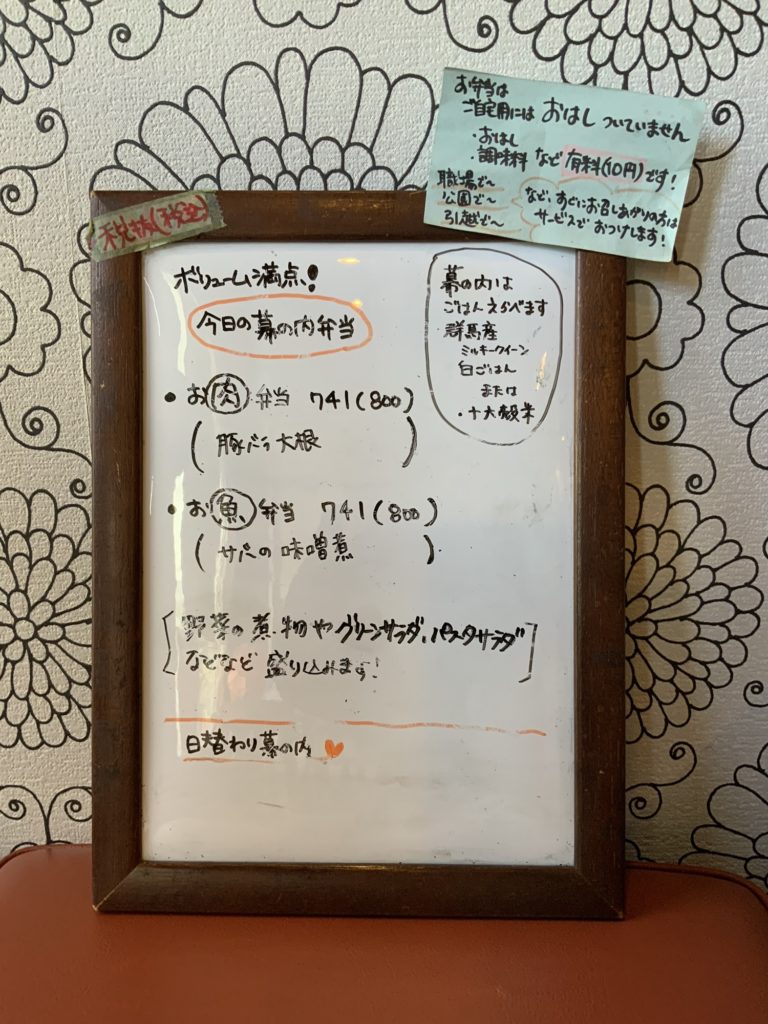 お弁当は
ご自宅用には おはし ついていません
・おはし
・調味料 など 有料(10円)です!
職場で〜
公園で〜
引越で〜
など、すぐにお召しあがりの方は
サービスで おつけします!
税抜(税込)
ボリューム満点!
今日の幕の内弁当
・お肉弁当 741(800)
(豚バラ大根)
・お魚弁当 741(800)
(サバの味噌煮)
[野菜の煮物やグリーンサラダ、パスタサラダ
などなど 盛り込みます!]
日替わり幕の内
幕の内は
ごはんえらべます
・群馬産
ミルキークイーン
白ごはん
または
・十六穀米